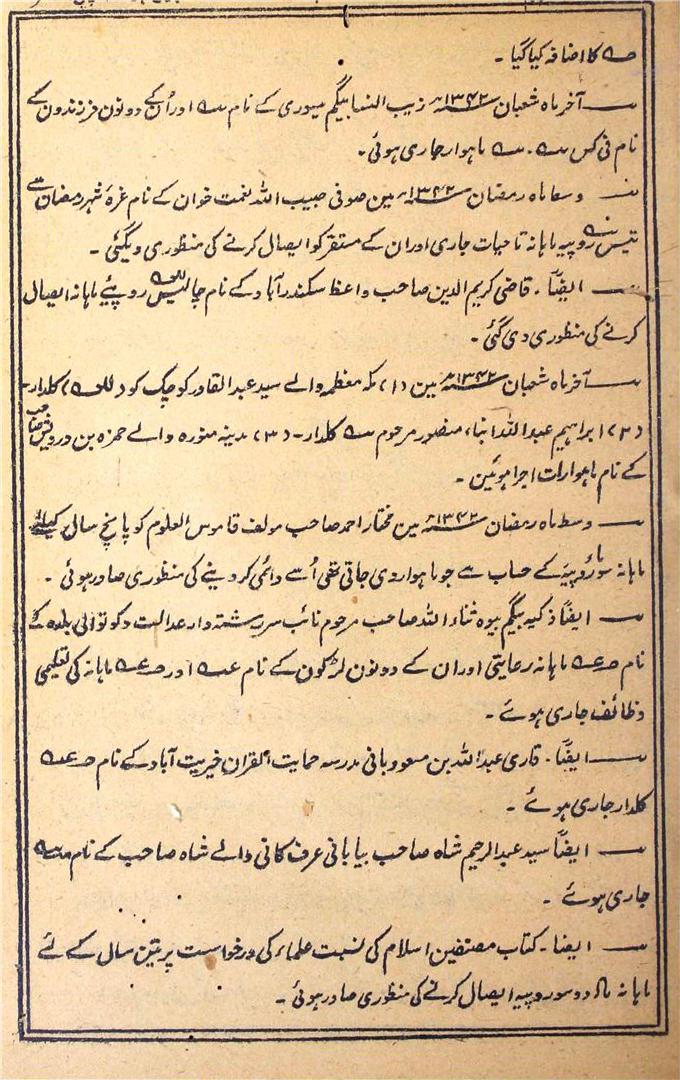 کا اضافہ کیا گیا ۔
آخر ماہ شعبان ۱۳۴۲ھ زیب النسا بیگم میوری کے نام اور اُن کے دونون فرزندون کے
نام فی کس ماہوار جاری ہوئی۔
وسط ماہ رمضان ۱۳۴۲ھ مین صوفی حبیب اللہ نعمت خوان کے نام غرۂ شہر رمضان سے
تیس روپیہ ماہانہ تا حیات جاری اور ان کے مستقر کو ایصال کرنے کی منظوری دیگئی ۔
ایضاً ۔ قاضی کریم الدین صاحب واعظ سکندرآباد کے نام چالیس روپئے ماہانہ ایصال
کرنے کی منظوری دی گئی ۔
آخر ماہ شعبان ۱۳۴۲ھ مین (۱) مکہ معظمہ والے سید عبدالقادر کوچک کو کلدار۔
(۲) ابراہیم عبداللہ منصور مرحوم کلدار۔ (۳) مدینہ منورہ والے حمزہ بن درویش صاحب
کے نام ماہوارات اجرا ہوئین ۔
وسط ماہ رمضان ۱۳۴۲ھ مین مختار احمد صاحب مولف قاموس العلوم کو پانچ سال کیلئے
ماہانہ سو روپیہ کے حساب سے جو ماہوار دی جاتی تھی اُسے دائمی کر دینے کی منظوری صادر ہوئی ۔
ایضاً ذکیہ بیگم بیوہ ثناء اللہ صاحب مرحوم نائب سررشتہ دار عدالت و کوتوالی بلدہ کے
نام ماہانہ رعایتی اور ان کے دونون لڑکون کے نام اور ماہانہ کی تعلیمی
وظائف جاری ہوئے ۔
ایضاً ۔ قاری عبداللہ بن مسعود بانی مدرسہ حمایت القران خیریت آباد کے نام
کلدار جاری ہوئے ۔
ایضاً سید عبدالرحیم شاہ صاحب بیابانی عرف کانی والے شاہ صاحب کے نام
جاری ہوئے ۔
ایضا ۔ کتاب مصنفین اسلام کی نسبت علماء کی درخواست پر تین سال کے لئے
ماہانہ دو سو روپیہ ایصال کرنے کی منظوری صادر ہوئی ۔